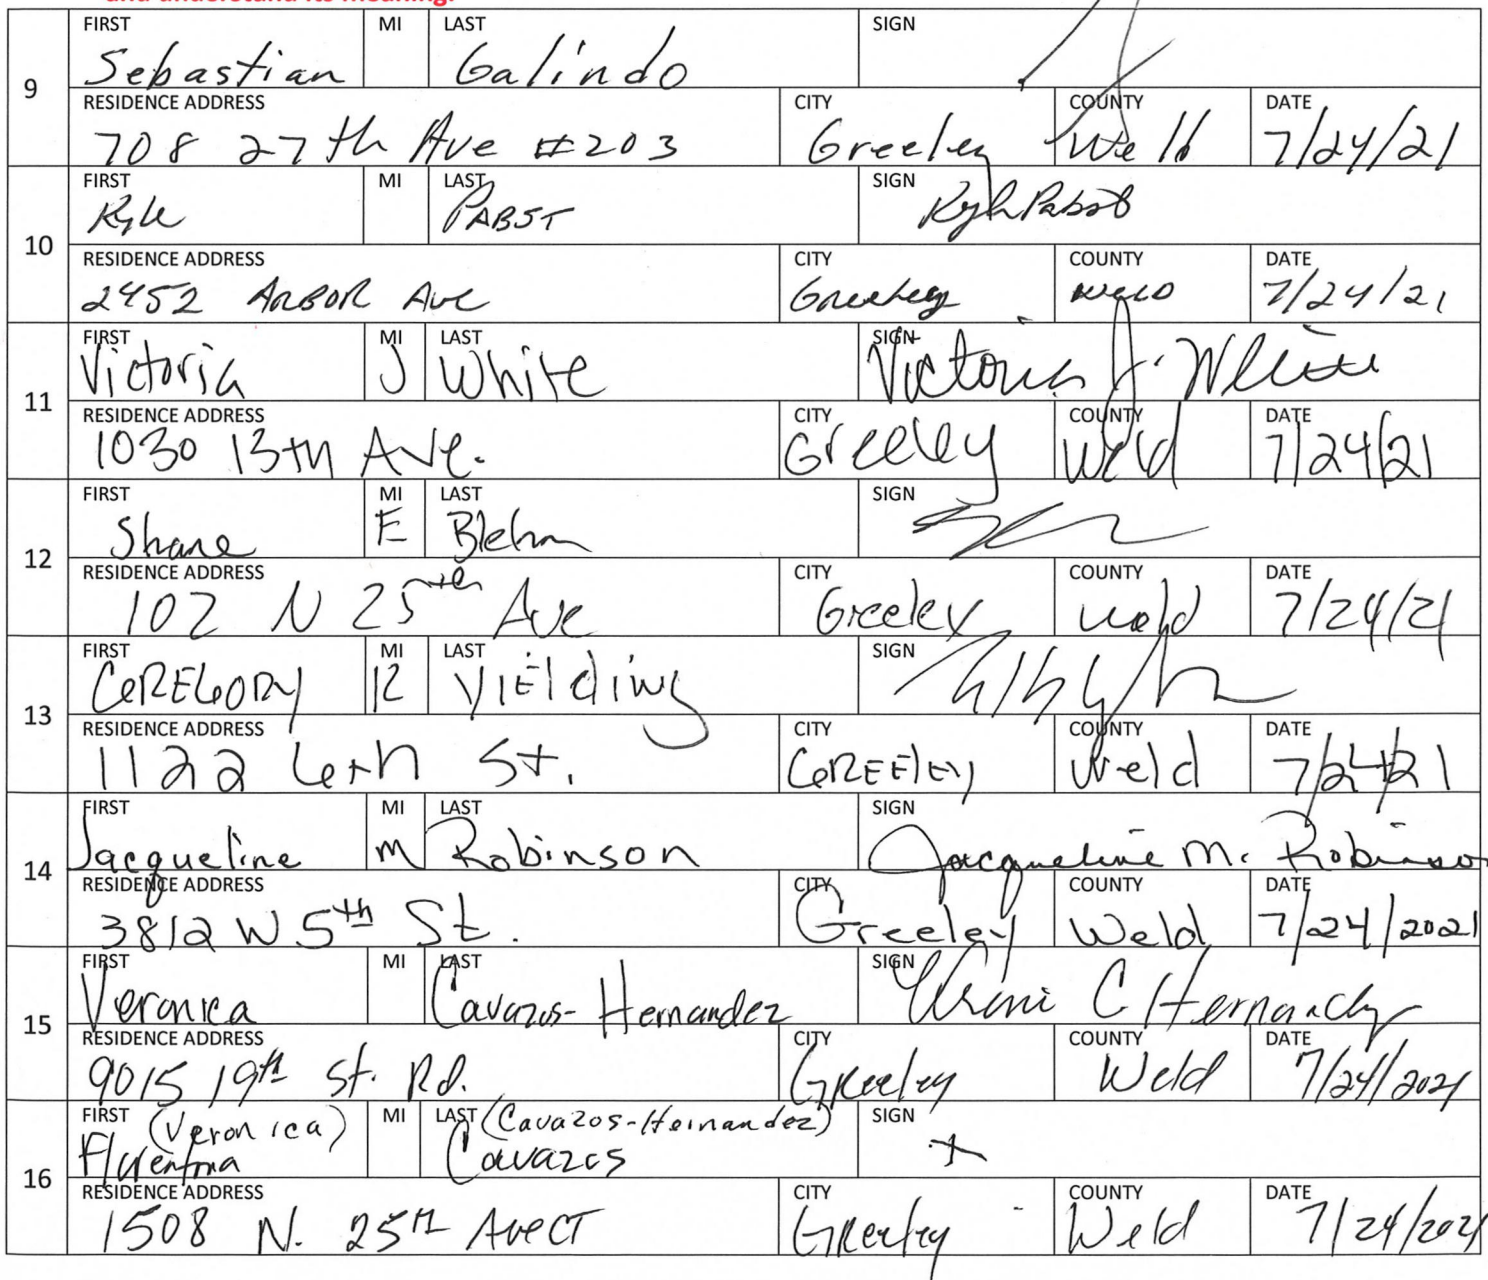 and understand its meaning.
FIRST MI LAST SIGN
Sebastian Galindo
9
RESIDENCE ADDRESS CITY COUNTY DATE
708 27th Ave #203 Greeley Weld 7/24/21
FIRST MI LAST SIGN
Kyle PABST Kyle Pabst
10
RESIDENCE ADDRESS CITY COUNTY DATE
2452 ARBOR Ave Greeley WELD 7/24/21
FIRST MI LAST SIGN
Victoria J White Victoria J. White
11
RESIDENCE ADDRESS CITY COUNTY DATE
1030 13th Ave. Greeley Weld 7/24/21
FIRST MI LAST SIGN
Shane E Blehm
12
RESIDENCE ADDRESS CITY COUNTY DATE
102 N 25th Ave Greeley Weld 7/24/21
FIRST MI LAST SIGN
GREGORY R YIElding
13
RESIDENCE ADDRESS CITY COUNTY DATE
1122 6th St. GREElEy Weld 7/24/21
FIRST MI LAST SIGN
Jacqueline M Robinson Jacqueline M. Robinson
14
RESIDENCE ADDRESS CITY COUNTY DATE
3812 W 5th St. Greeley Weld 7/24/2021
FIRST MI LAST SIGN
Veronica Cavazos-Hernandez C Hernandez
15
RESIDENCE ADDRESS CITY COUNTY DATE
9015 19th St. Rd. Greeley Weld 7/24/2021
FIRST (Veronica) MI LAST (Cavazos-Hernandez) SIGN
Florentina Cavazos x
16
RESIDENCE ADDRESS CITY COUNTY DATE
1508 N. 25th Ave CT Greeley Weld 7/24/2021